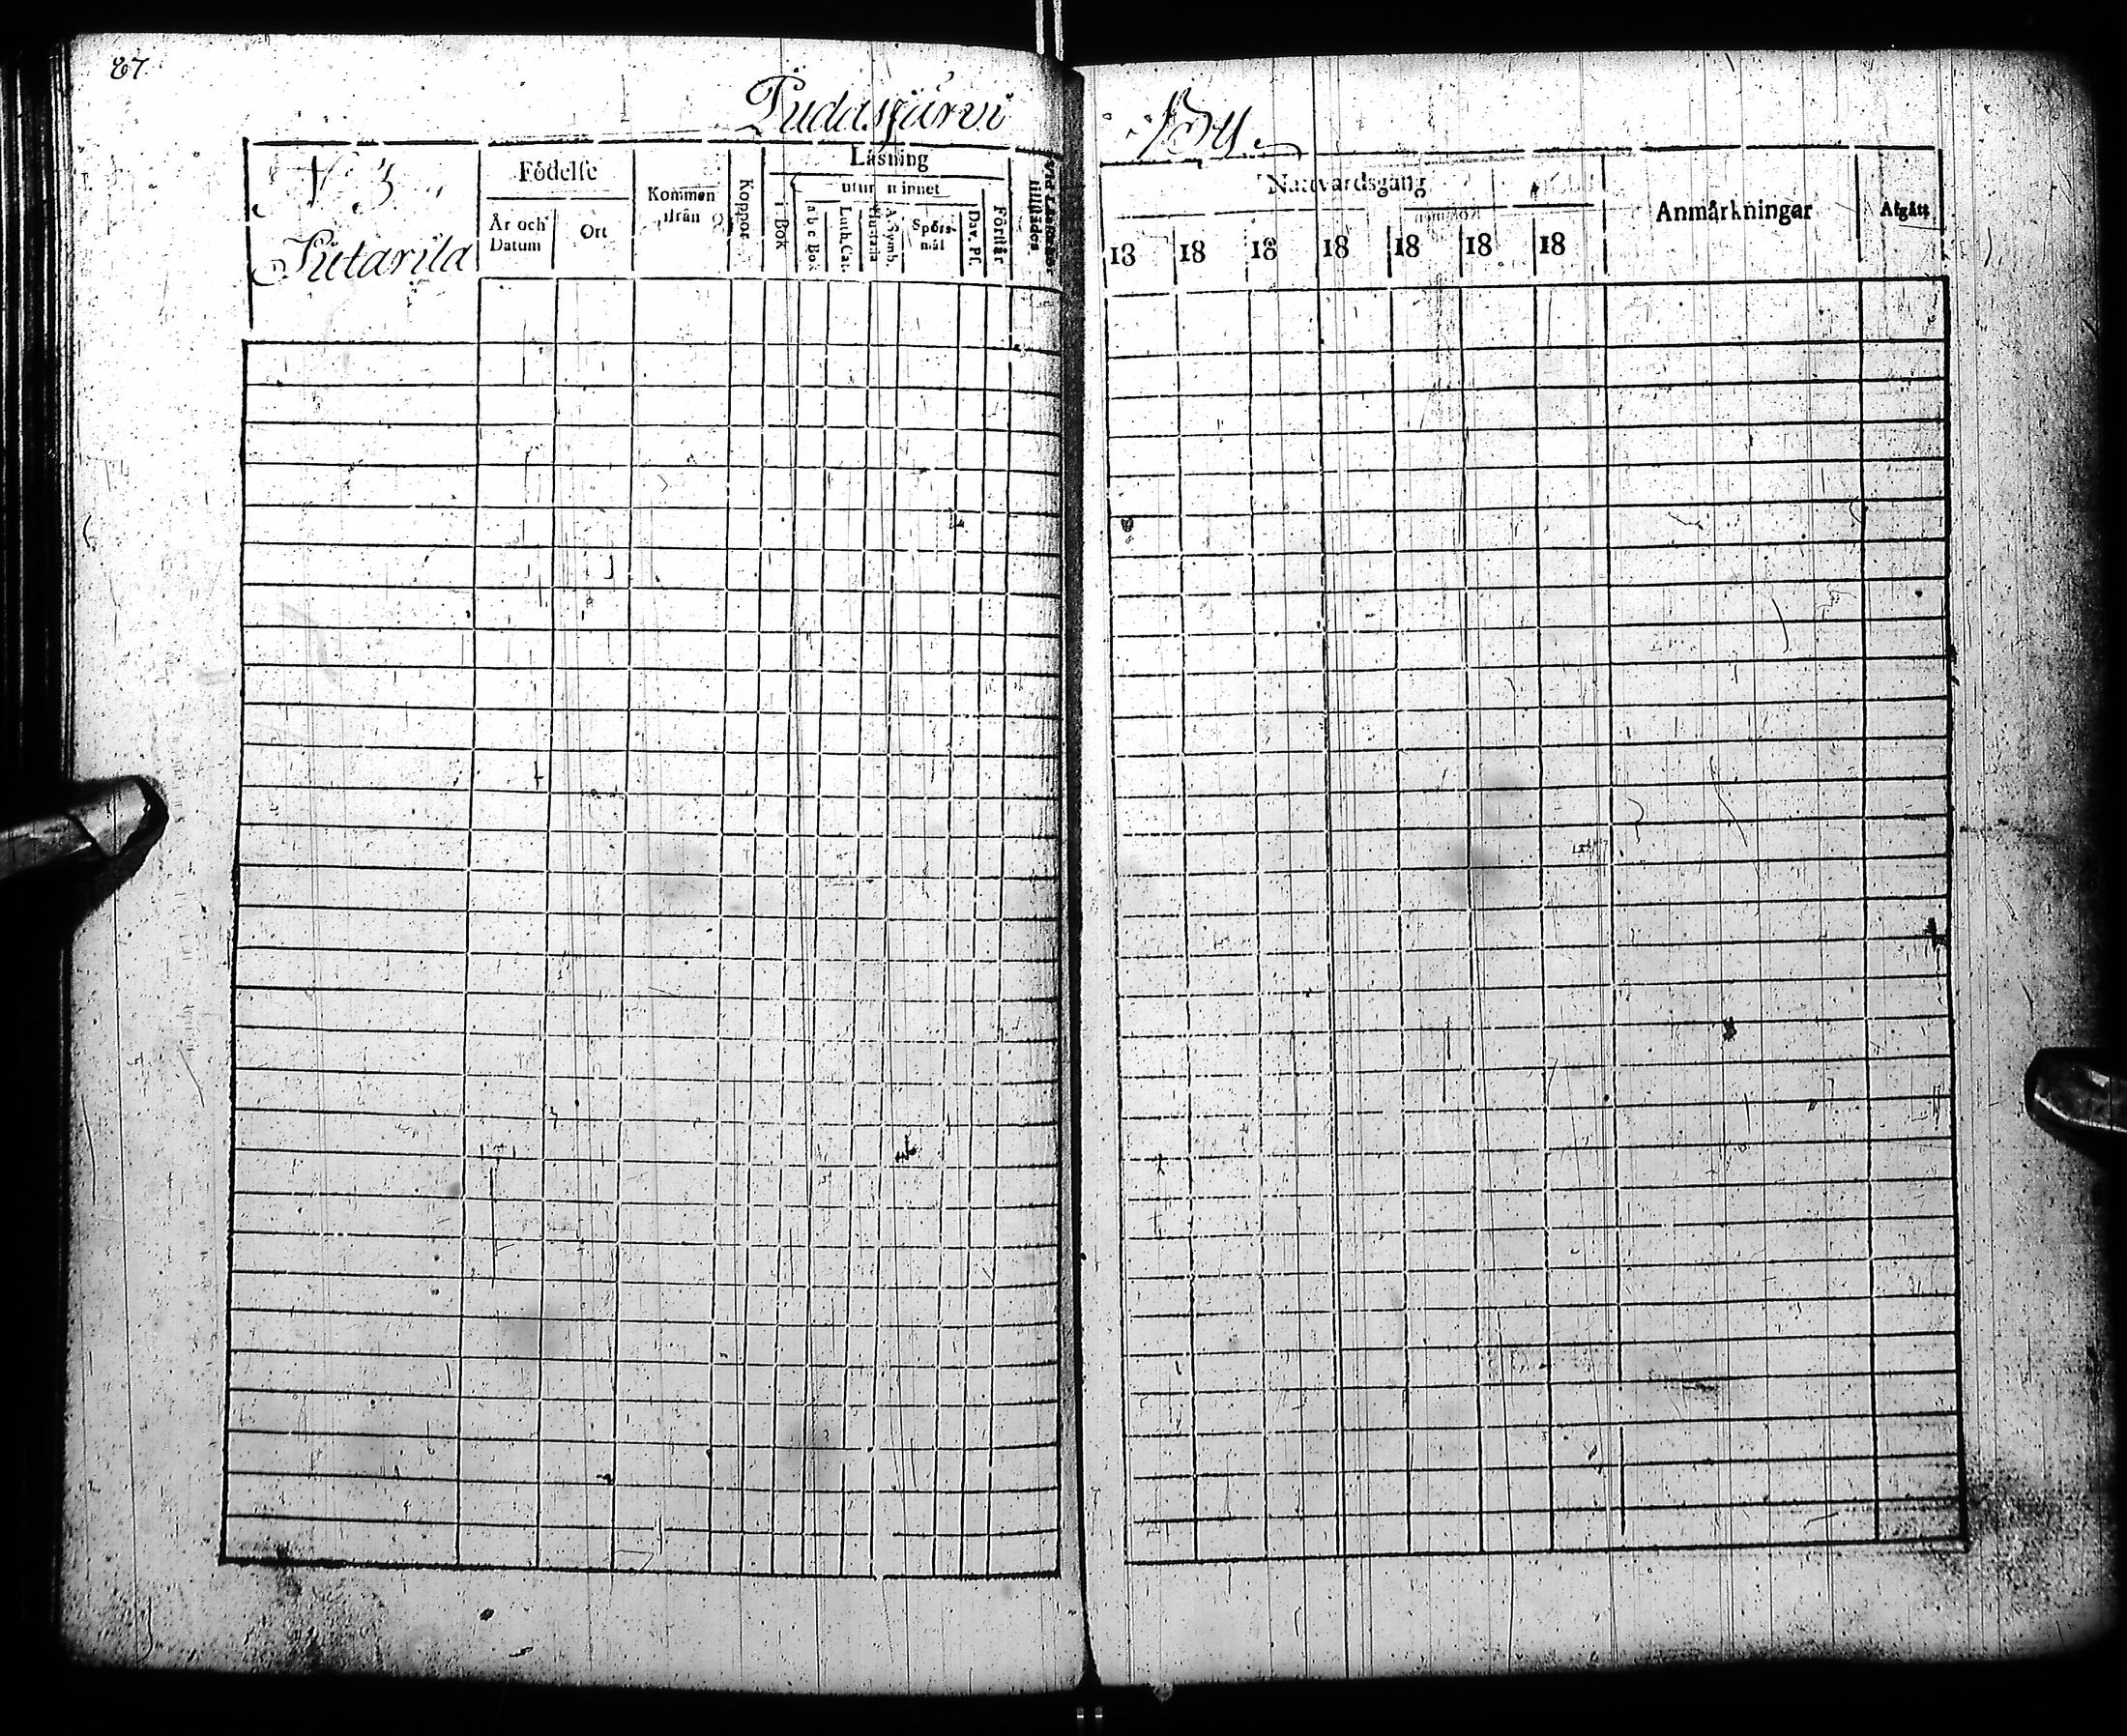 87
Pudasjärvi
By.
N 3
Födelse
Kommen ifrån
Koppor
Läsning
utur minnet
År och Datum
Ort
i Bok
a b c Bok
Luth. Cat.
Hustafla
A. Symb.
Spörsmål
Dav. Ps.
Förstår
Nattvardsgång
Anmärkningar
Afgått
18 18 18 18 18 18 18